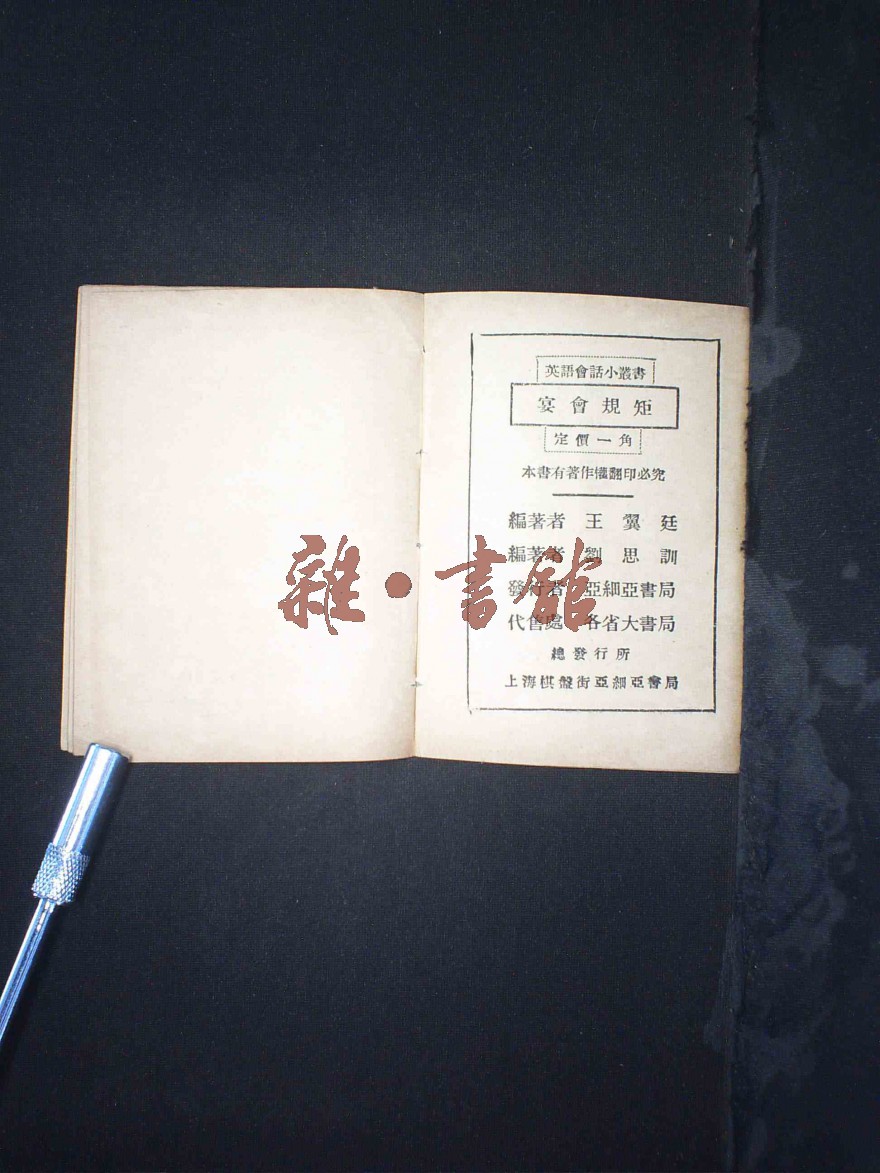 英語會話小叢書
宴會規矩
定價一角
本書有著作權翻印必究
編著者 王翼廷
編著者 劉思訓
發行者 亞細亞書局
代售處 各省大書局
總發行所
上海棋盤街亞細亞書局
雜·書館